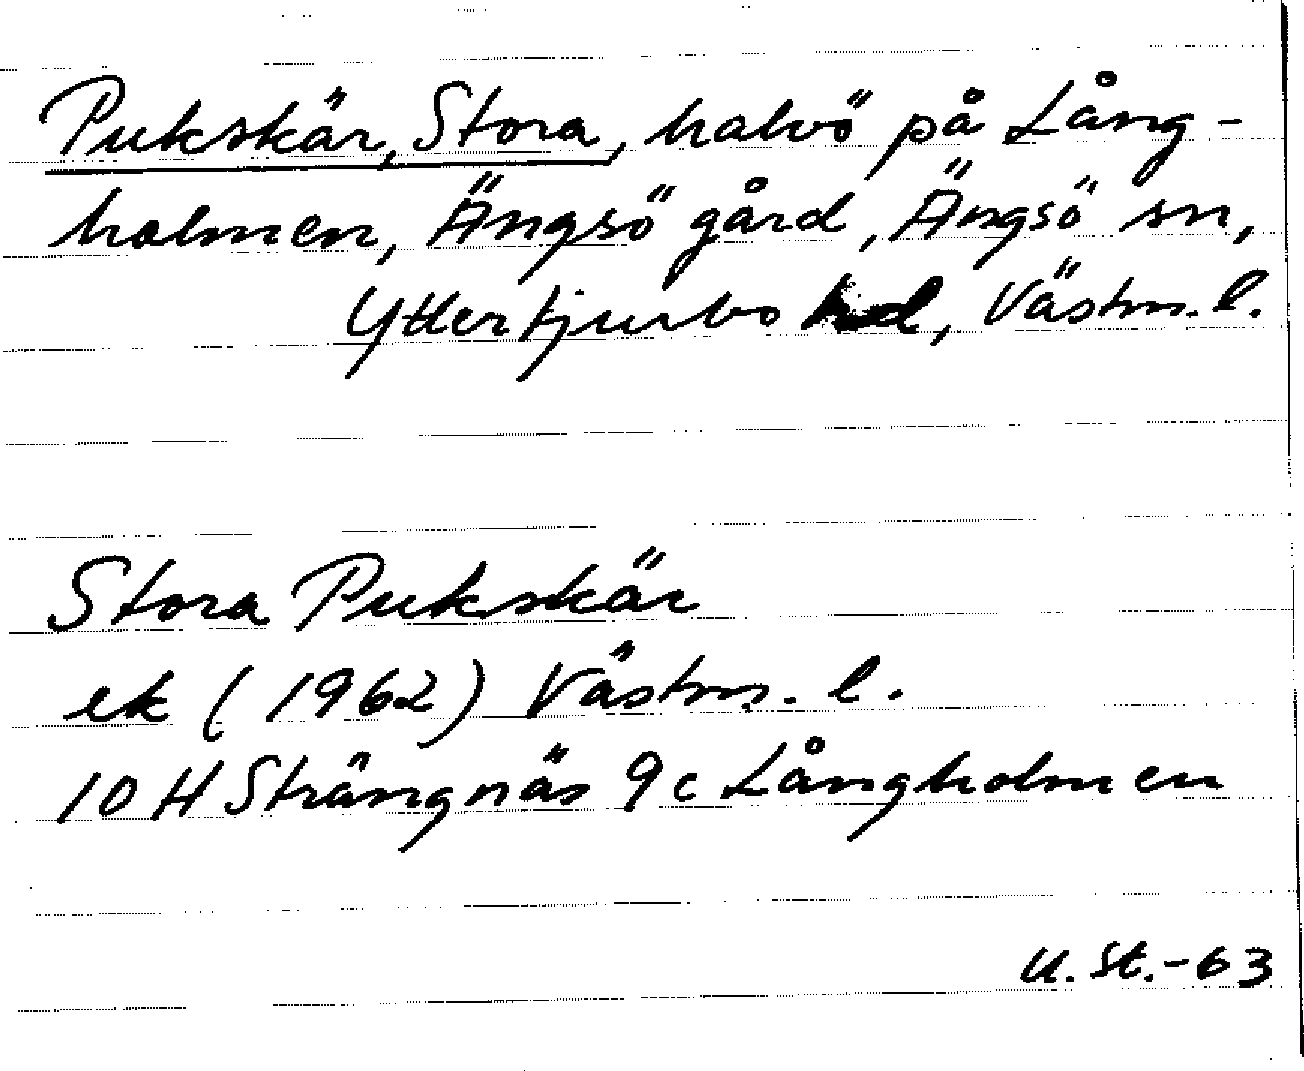 Pukskär, Stora, halvö på Lång-
holmen, Ängsö gård, Ängsö sn,
Yttertjurbo hd, Västm. l.
Stora Pukskär
ek (1962) Västm. l.
10 H Strängnäs 9c Långholmen
U. St. -63